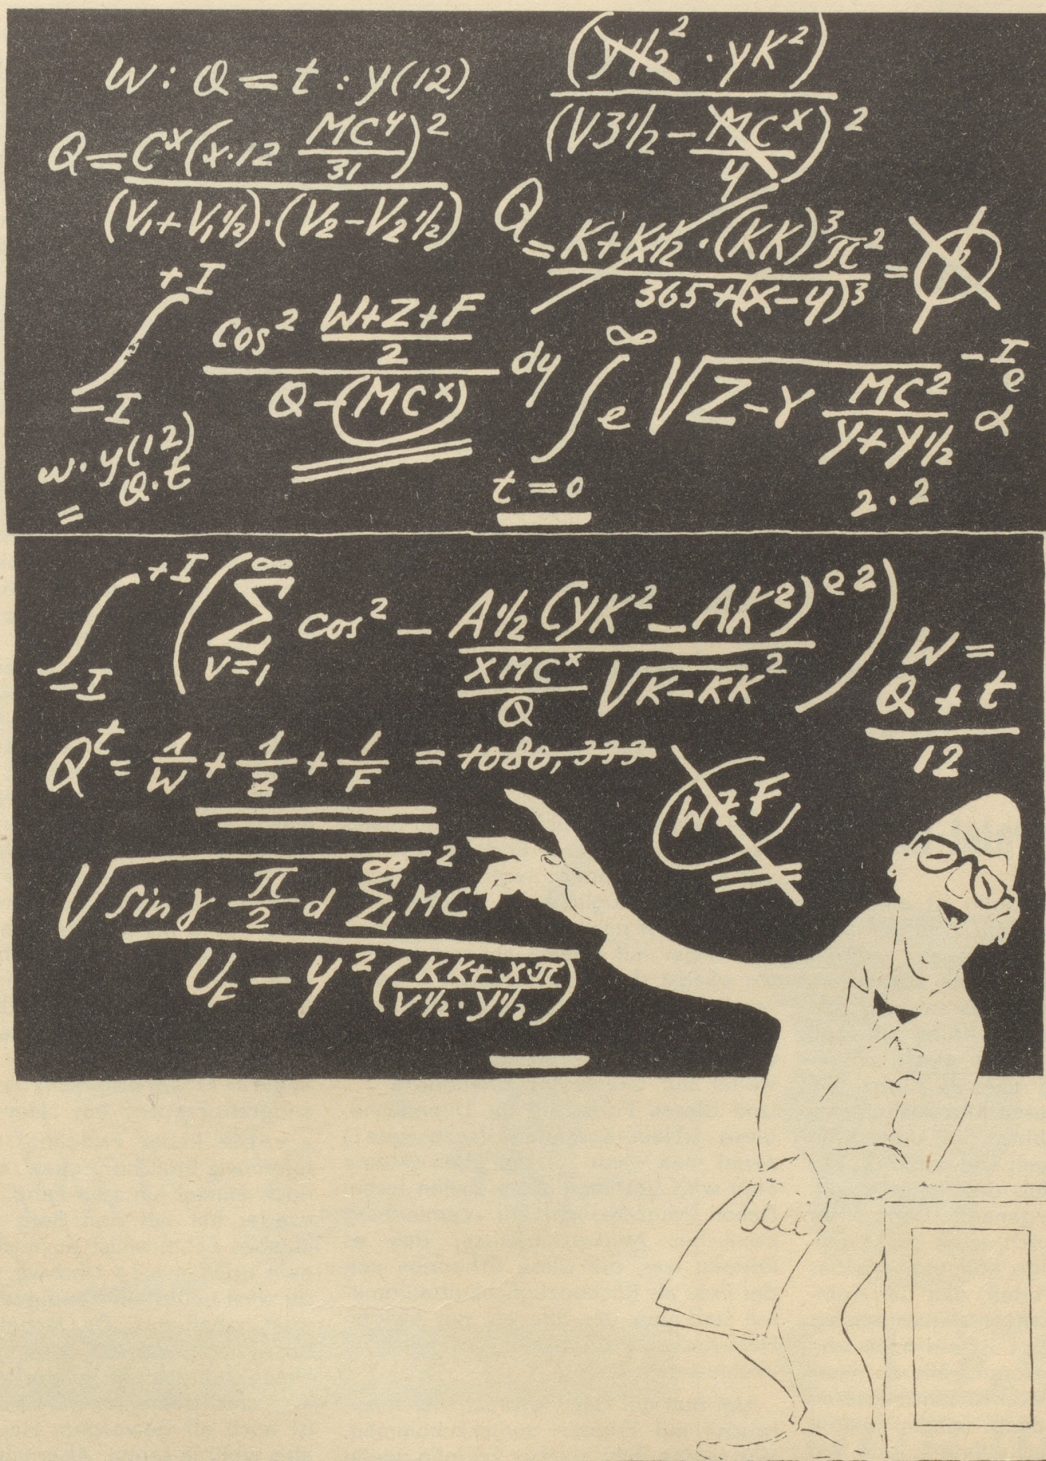 W : Q = t : y(12)
Q = C^x (x·12 MC^y/31)^2 / (V₁+V₁½)·(V₂−V₂½)
(y½^2 · yK^2) / (V3½ − MC^x/y)^2
Q = K+K½ · (KK)^3 π^2 / 365+(x−y)^3 = Q
∫ +I −I cos^2 W+Z+F/2 / Q−(MC^x) dy
∫ ∞ t=0 e √Z−γ MC^2/y+y½ −I e α
w· y(12)
Q·t
=
2 · 2
∫ +I −I (∑ ∞ v=1 cos^2 − A½(yK^2 − AK^2)^e2 / XMC^x/Q √K−KK^2)
W =
Q + t
12
Q^t = 1/W + 1/Z + 1/F = 1080,333
WZF
√sin γ π/2 d ∑ ∞ MC^2
U_F − y^2 (KK+xπ / V½·y½)